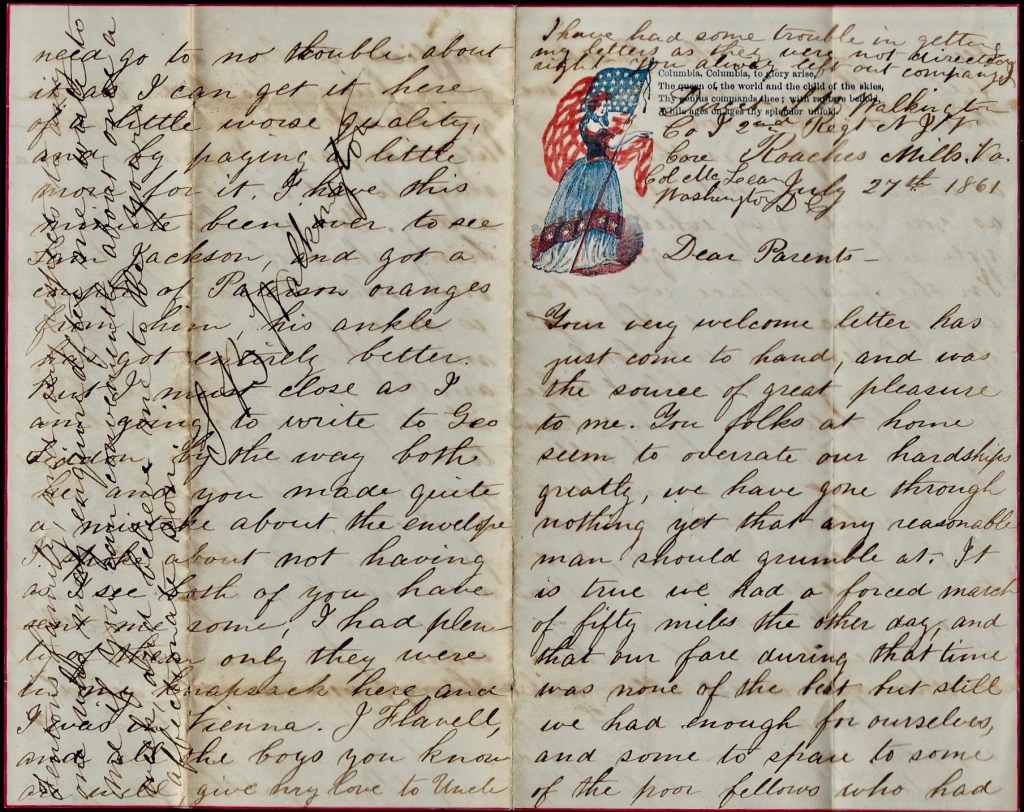 I have had some trouble in getting
my letters as they were not directed
right you always left out company
Columbia, Columbia, to glory arise,
The queen of the world and the child of the skies,
Thy genius commands thee; with rapture behold,
While ages on ages thy splendor unfold.
Walkington
Co I 2nd Regt N J V
Care Roaches Mills. Va.
Col Mc Lean July 27th 1861
Washington D C
Dear Parents —
Your very welcome letter has
just come to hand, and was
the source of great pleasure
to me. You folks at home
seem to overrate our hardships
greatly, we have gone through
nothing yet that any reasonable
man should grumble at. It
is true we had a forced march
of fifty miles the other day, and
that our fare during that time
was none of the best but still
we had enough for ourselves,
and some to spare to some
of the poor fellows who had
need go to no trouble about
it as I can get it here
of a little worse quality,
and by paying a little
more for it. I have this
minute been over to see
Sam Jackson, and got a
couple of oranges
from him, his ankle
has got entirely better.
But I must close as I
am going to write to Geo
By the way both
he and you made quite
a mistake about the envelope
I wrote about not having
as see both of you have
sent me some, I had plen
ty of them only they were
in my knapsack here and
I was in Vienna. J Flavell,
and all the boys you know
as well give my love to Uncle
family, and all my friends
me if you can conveniently about once a
week, and believe me to be your
affectionate son
Walkington